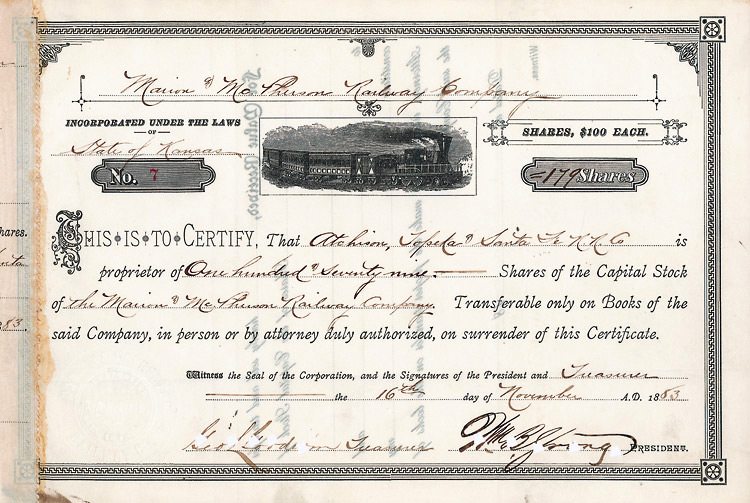 Marion & McPherson Railway Company
INCORPORATED UNDER THE LAWS
OF
State of Kansas
SHARES, $100 EACH.
No. 7
179 Shares
THIS IS TO CERTIFY, That Atchison, Topeka & Santa Fe R.R. Co is
proprietor of One hundred & seventy nine Shares of the Capital Stock
of the Marion & McPherson Railway Company. Transferable only on Books of the
said Company, in person or by attorney duly authorized, on surrender of this Certificate.
Witness the Seal of the Corporation, and the Signatures of the President and Treasurer
the 16th day of November A.D. 1883
Treasurer
PRESIDENT.
hares.
83.